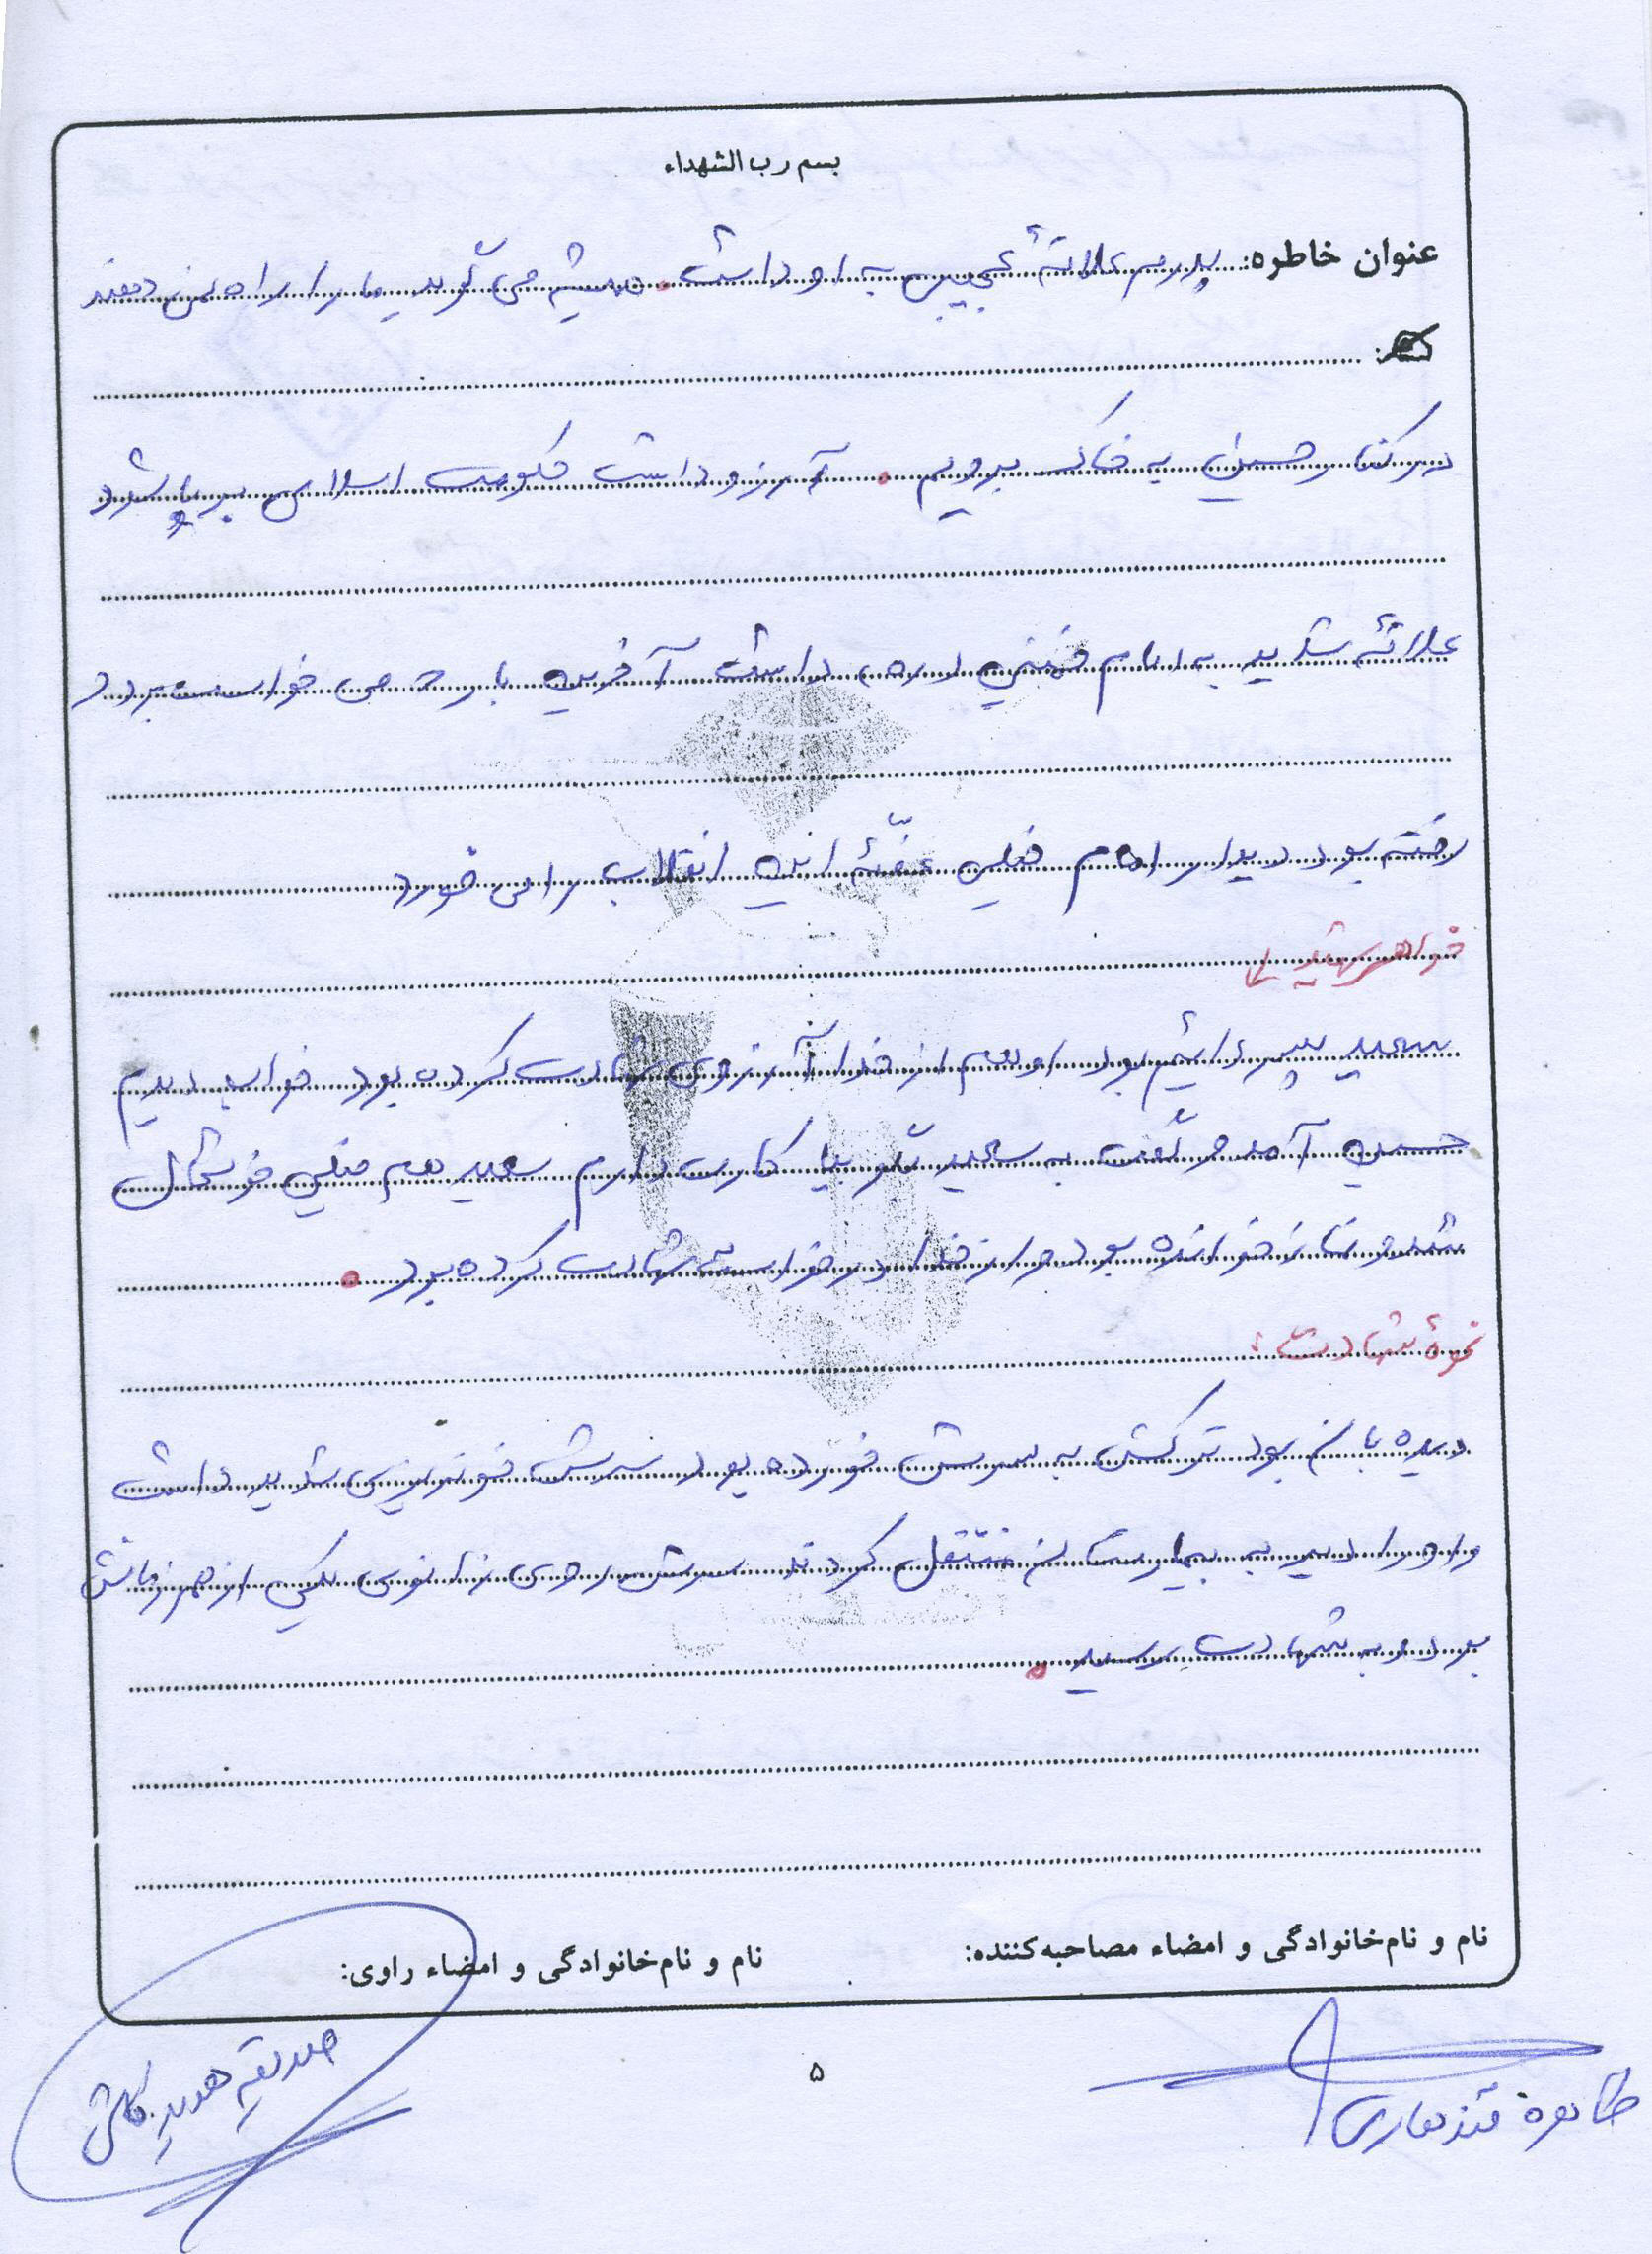 بسم رب الشهداء
عنوان خاطره: پدرم علاقهٔ عجیبی به او داشت. همیشه می گوید ما را راه نمی دهند
در کنار حسین به خاک برویم. آرزو داشت حکومت اسلامی بر پا شود
علاقهٔ شدید به امام خمینی (ره) داشت آخرین بار که می خواست برود
رفته بود دیدار امام خیلی غصّهٔ این انقلاب را می خورد
خواهر شهید:
سعید پسر دائیم بود او هم از خدا آرزوی شهادت کرده بود خواب دیدم
حسین آمد و گفت به سعید تو بیا کارت دارم سعید هم خیلی خوشحال
شد و نماز خوانده بود و از خدا درخواست شهادت کرده بود.
نحوهٔ شهادت:
دیده بان بود ترکش به سرش خورده بود سرش خونریزی شدید داشت
و او را دیر به بیمارستان منتقل کردند سرش روی زانوی یکی از همرزمانش
بود و به شهادت رسید.
نام و نام‌خانوادگی و امضاء مصاحبه‌کننده:
نام و نام‌خانوادگی و امضاء راوی:
طاهره قندهاری
صدیقه
۵